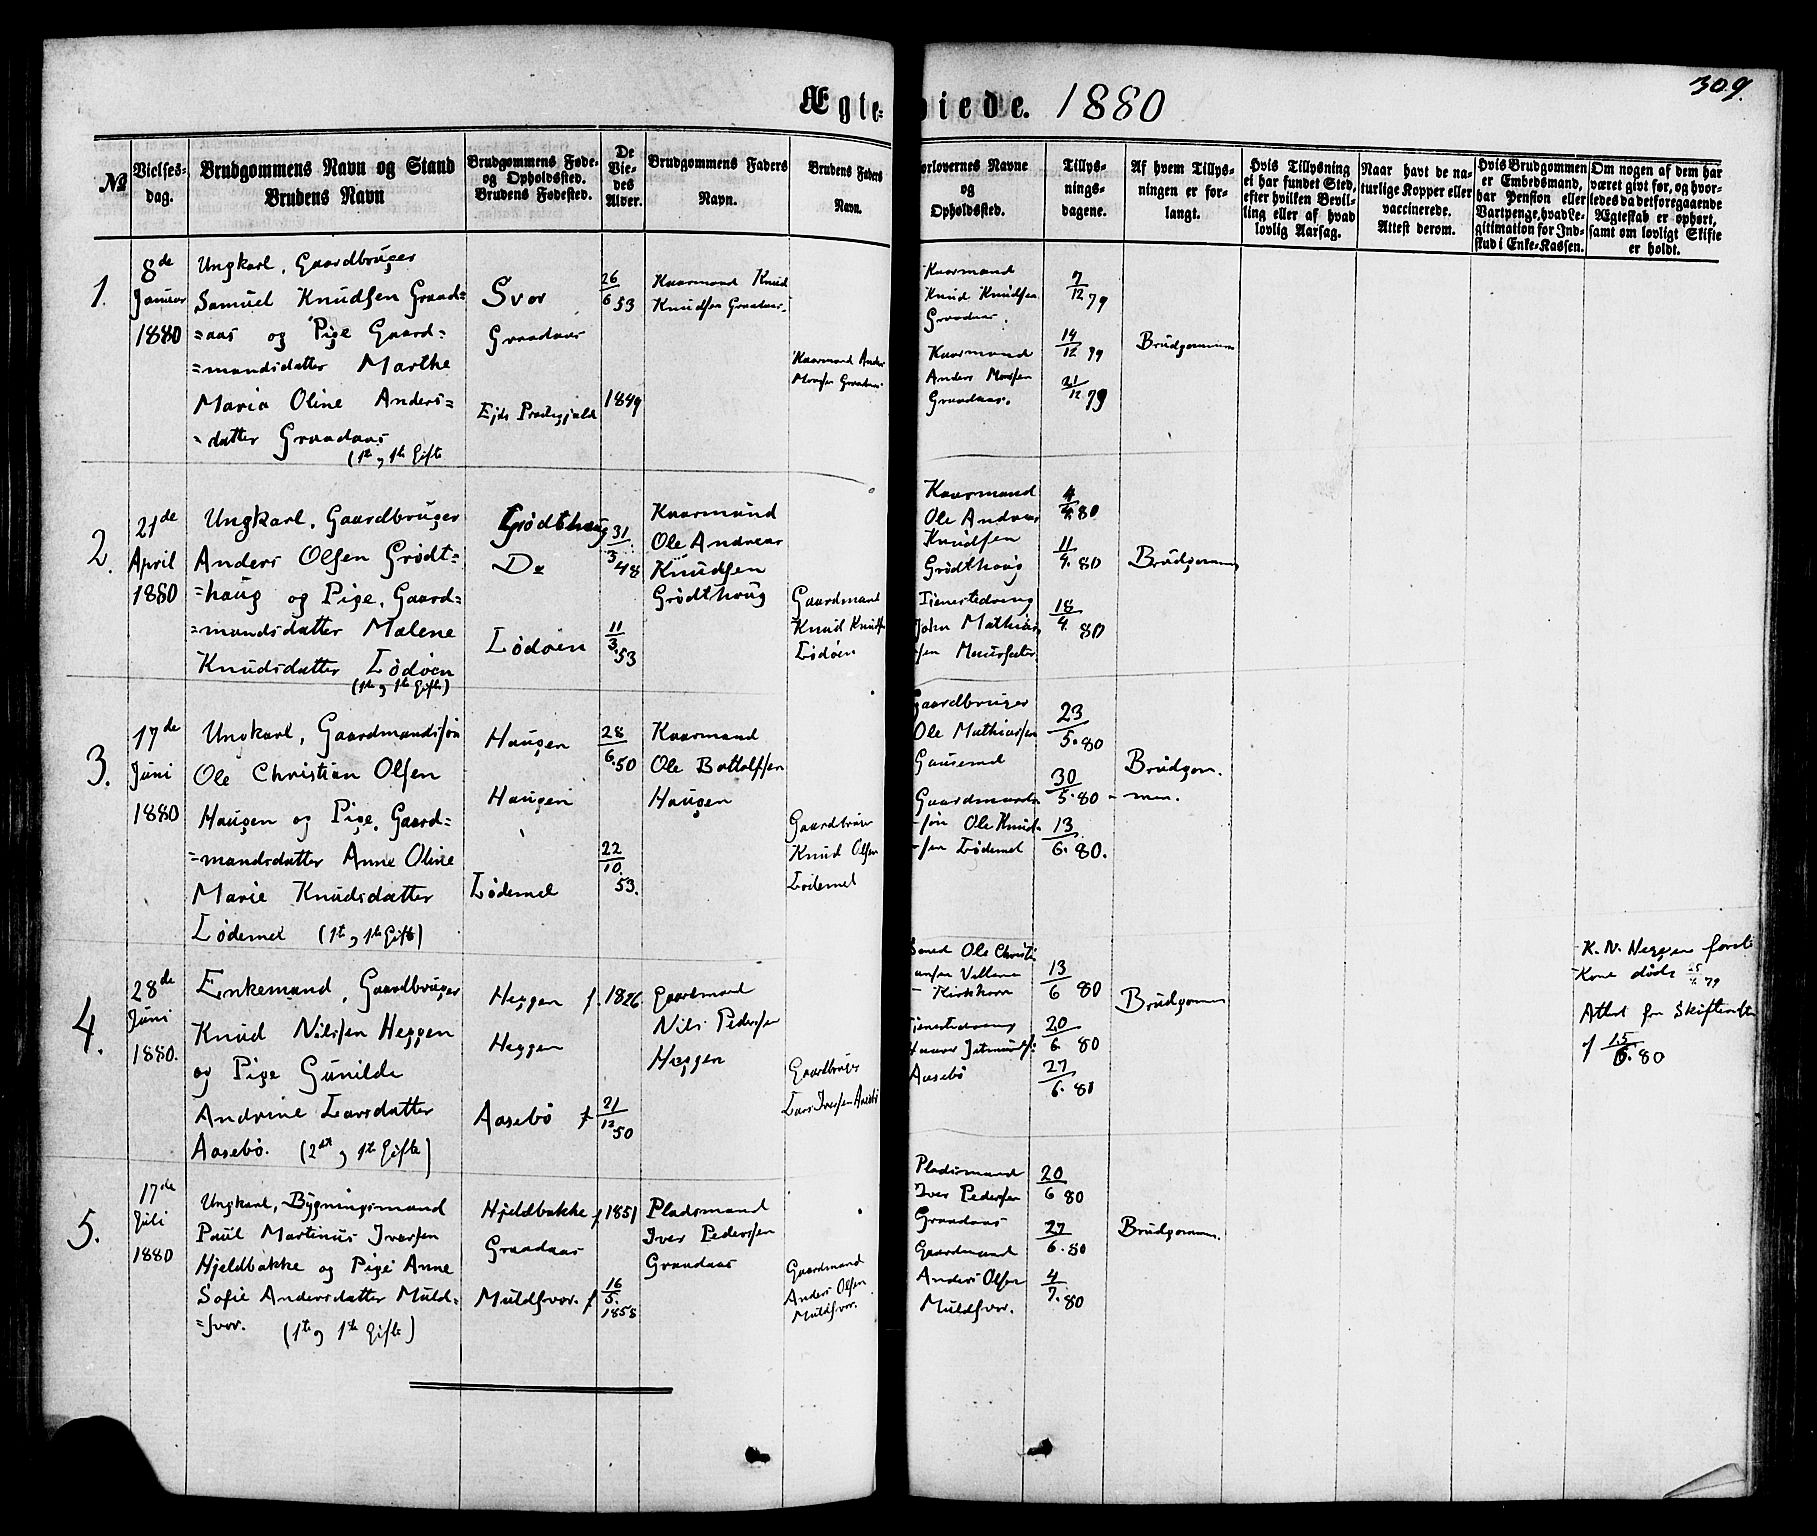 309.
Ægte-
viede. 1880
No
Vielses-
dag.
Brudgommens Navn og Stand
Brudens Navn
Brudgommens Føde-
og Opholdssted.
Brudens Fødested.
De
Vie-
des
Alder.
Brudgommens Faders
Navn.
Brudens Faders
Navn.
orlovernes Navne
og
Opholdssted.
Tillys-
nings-
dagene.
Af hvem Tillys-
ningen er for-
langt.
Hvis Tillysning
ei har fundet Sted,
efter hvilken Bevil-
ling eller af hvad
lovlig Aarsag.
Naar havt de na-
turlige Kopper eller
vaccinerede.
Attest derom.
Hvis Brudgommen
er Embedsmand,
har Pension eller
Vartpenge, hvad Le-
gitimation for Ind-
skud i Enke-Kassen.
Om nogen af dem har
været givt før, og hvor-
ledes da det foregaaende
Ægteskab er ophørt,
samt om lovligt Skifte
er holdt.
1.
8de
Januar
1880
Ungkarl, Gaardbruger
Samuel Knudsen Graad=
=aas og Pige Gaard=
=mandsdatter Marthe
Maria Oline Anders=
=datter Graadaas
(1te og 1te Gifte
Svor
Graadaas
Ejds Prestegjeld
26/6 53
1849
Kaarmand Knud
Knudsen Graadaas.
Kaarmand Ander
Graadaas
Kaarmand
Knud Knudsen
Graadaas.
Kaarmand
Anders
Graadaas.
7/12 79
14/12 79
21/12 79
Brudgommen
2.
21de
April
1880
Ungkarl, Gaardbruger
Anders Olsen Grødt=
=haug og Pige, Gaard=
=mandsdatter Malene
Knudsdatter Lødøen
(1te og 1te Gifte)
Grødthaug
Do
Lødøen
31/3 48
11/3. 53
Kaarmand
Ole Andreas
Knudsen
Grødthaug
Gaardmand
Knud Knuds
Lødøen
Kaarmand
Ole Andreas
Knudsen
Grødthaug
Tjenestedreng
John Mathias
sen
4/4. 80
11/4. 80
18/4. 80
Brudgommen
3.
17de
Juni
1880
Ungkarl, Gaardmandssøn
Ole Christian Olsen
Haugen og Pige, Gaard=
=mandsdatter Anne Oline
Marie Knudsdatter
Lødemel (1te og 1te Gifte)
Haugen
Haugen
Lødemel
28/6. 50
22/10. 53.
Kaarmand
Ole Bottolfsen
Haugen
Gaardbruger
Knud Olsen
Lødemel
Gaardbruger
Ole Mathiassen
Gausemel
Gaardmands-
-søn Ole Knud-
-sen Lødemel
23/5. 80
30/5. 80 -
13/6. 80.
Brudgom.
men.
4.
28de
Juni
1880.
Enkemand, Gaardbruger
Knud Nilssen Heggen
og Pige Gunilde
Andrine Larsdatter
Aasebø. (2det og 1te Gifte)
Heggen f.
Heggen
Aasebø f
1826
21/12 50
Gaardmand
Nils Pedersen
Heggen
Gaardbruger
Lars Iversen Aasebø
Ole Christi
ansen
Kirkhorn
Tjenestedreng
Aasebø
13/6 80
20/6 80
27/6. 80
Brudgommen
K. N. Heggen forste
Kone døde 25/4 79
Attest fra Skifteretten
af 15/6. 80
5.
17de
Juli
1880
Ungkarl, Bygningsmand
Paul Martinus Iversen
Hjeldbakke og Pige Anne
Sofie Andersdatter Muld=
=svor. (1te og 1te Gifte)
Hjeldbakke f
Graadaas
Muldsvor. f
1851
16/5. 1858
Pladsmand
Iver Pedersen
Graadaas
Gaardmand
Anders Olsen
Muldsvor.
Pladsmand
Iver Pedersen
Graadaas
Gaardmand
Anders Olsen
Muldsvor.
20/6 80
27/6. 80
4/7. 80
Brudgommen.